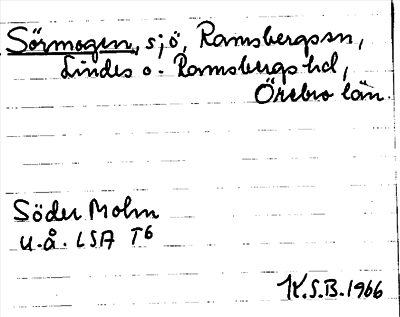 Sörmogen, sjö, Ramsbergssn,
Lindes o. Ramsbergs hd,
Örebro län.
Söder Mohn
u.å. LSA T6
K.S.B. 1966